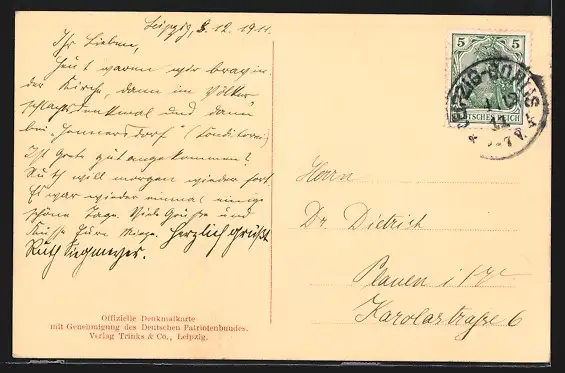 Leipzig, 3. 12. 1911.
Ihr Lieben,
Heut waren wir brav in
der Kirche, dann im Völker-
schlachtdenkmal und dann
bei "Hennersdorf" (Konditorei)
Ist Grete gut angekommen?
Ruth will morgen wieder fort.
Es war wieder einmal einige
schöne Tage. Viele Grüsse und
Küsse Eure Herzlich grüßt
Ruth Siegmeyer.
5 5
DEUTSCHES REICH
LEIPZIG
Herrn
Dr. Dietrich
Plauen i/V.
Karolastraße 6
Offizielle Denkmalkarte
mit Genehmigung des Deutschen Patriotenbundes.
Verlag Trinks & Co., Leipzig.